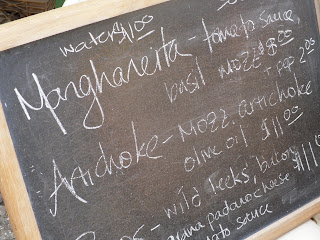 water $1.00
Marghareita - tomato sauce,
basil MOZZ $8.00
+ pep 2.00
Artichoke - MOZZ, artichoke
olive oil $11.00
wild leeks, bacon,
padano cheese
sauce